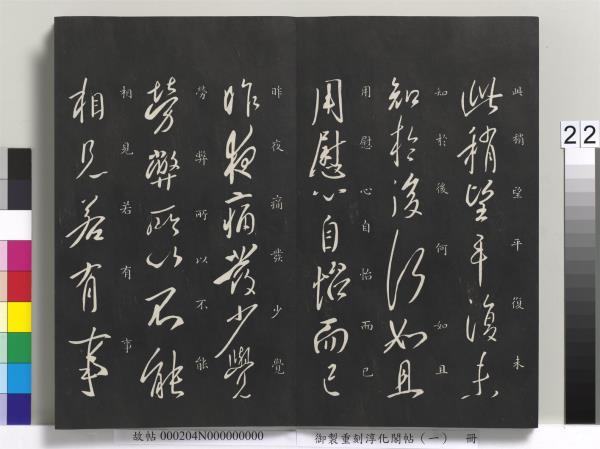 此稍望平復未
此稍望平復未
知於後何如且
知於後何如且
用慰心自怡而已
用慰心自怡而已
昨夜痛發少覺
昨夜痛發少覺
勞弊所以不能
勞弊所以不能
相見若有事
相見若有事
22
故帖 000204N000000000
御製重刻淳化閣帖（一） 冊